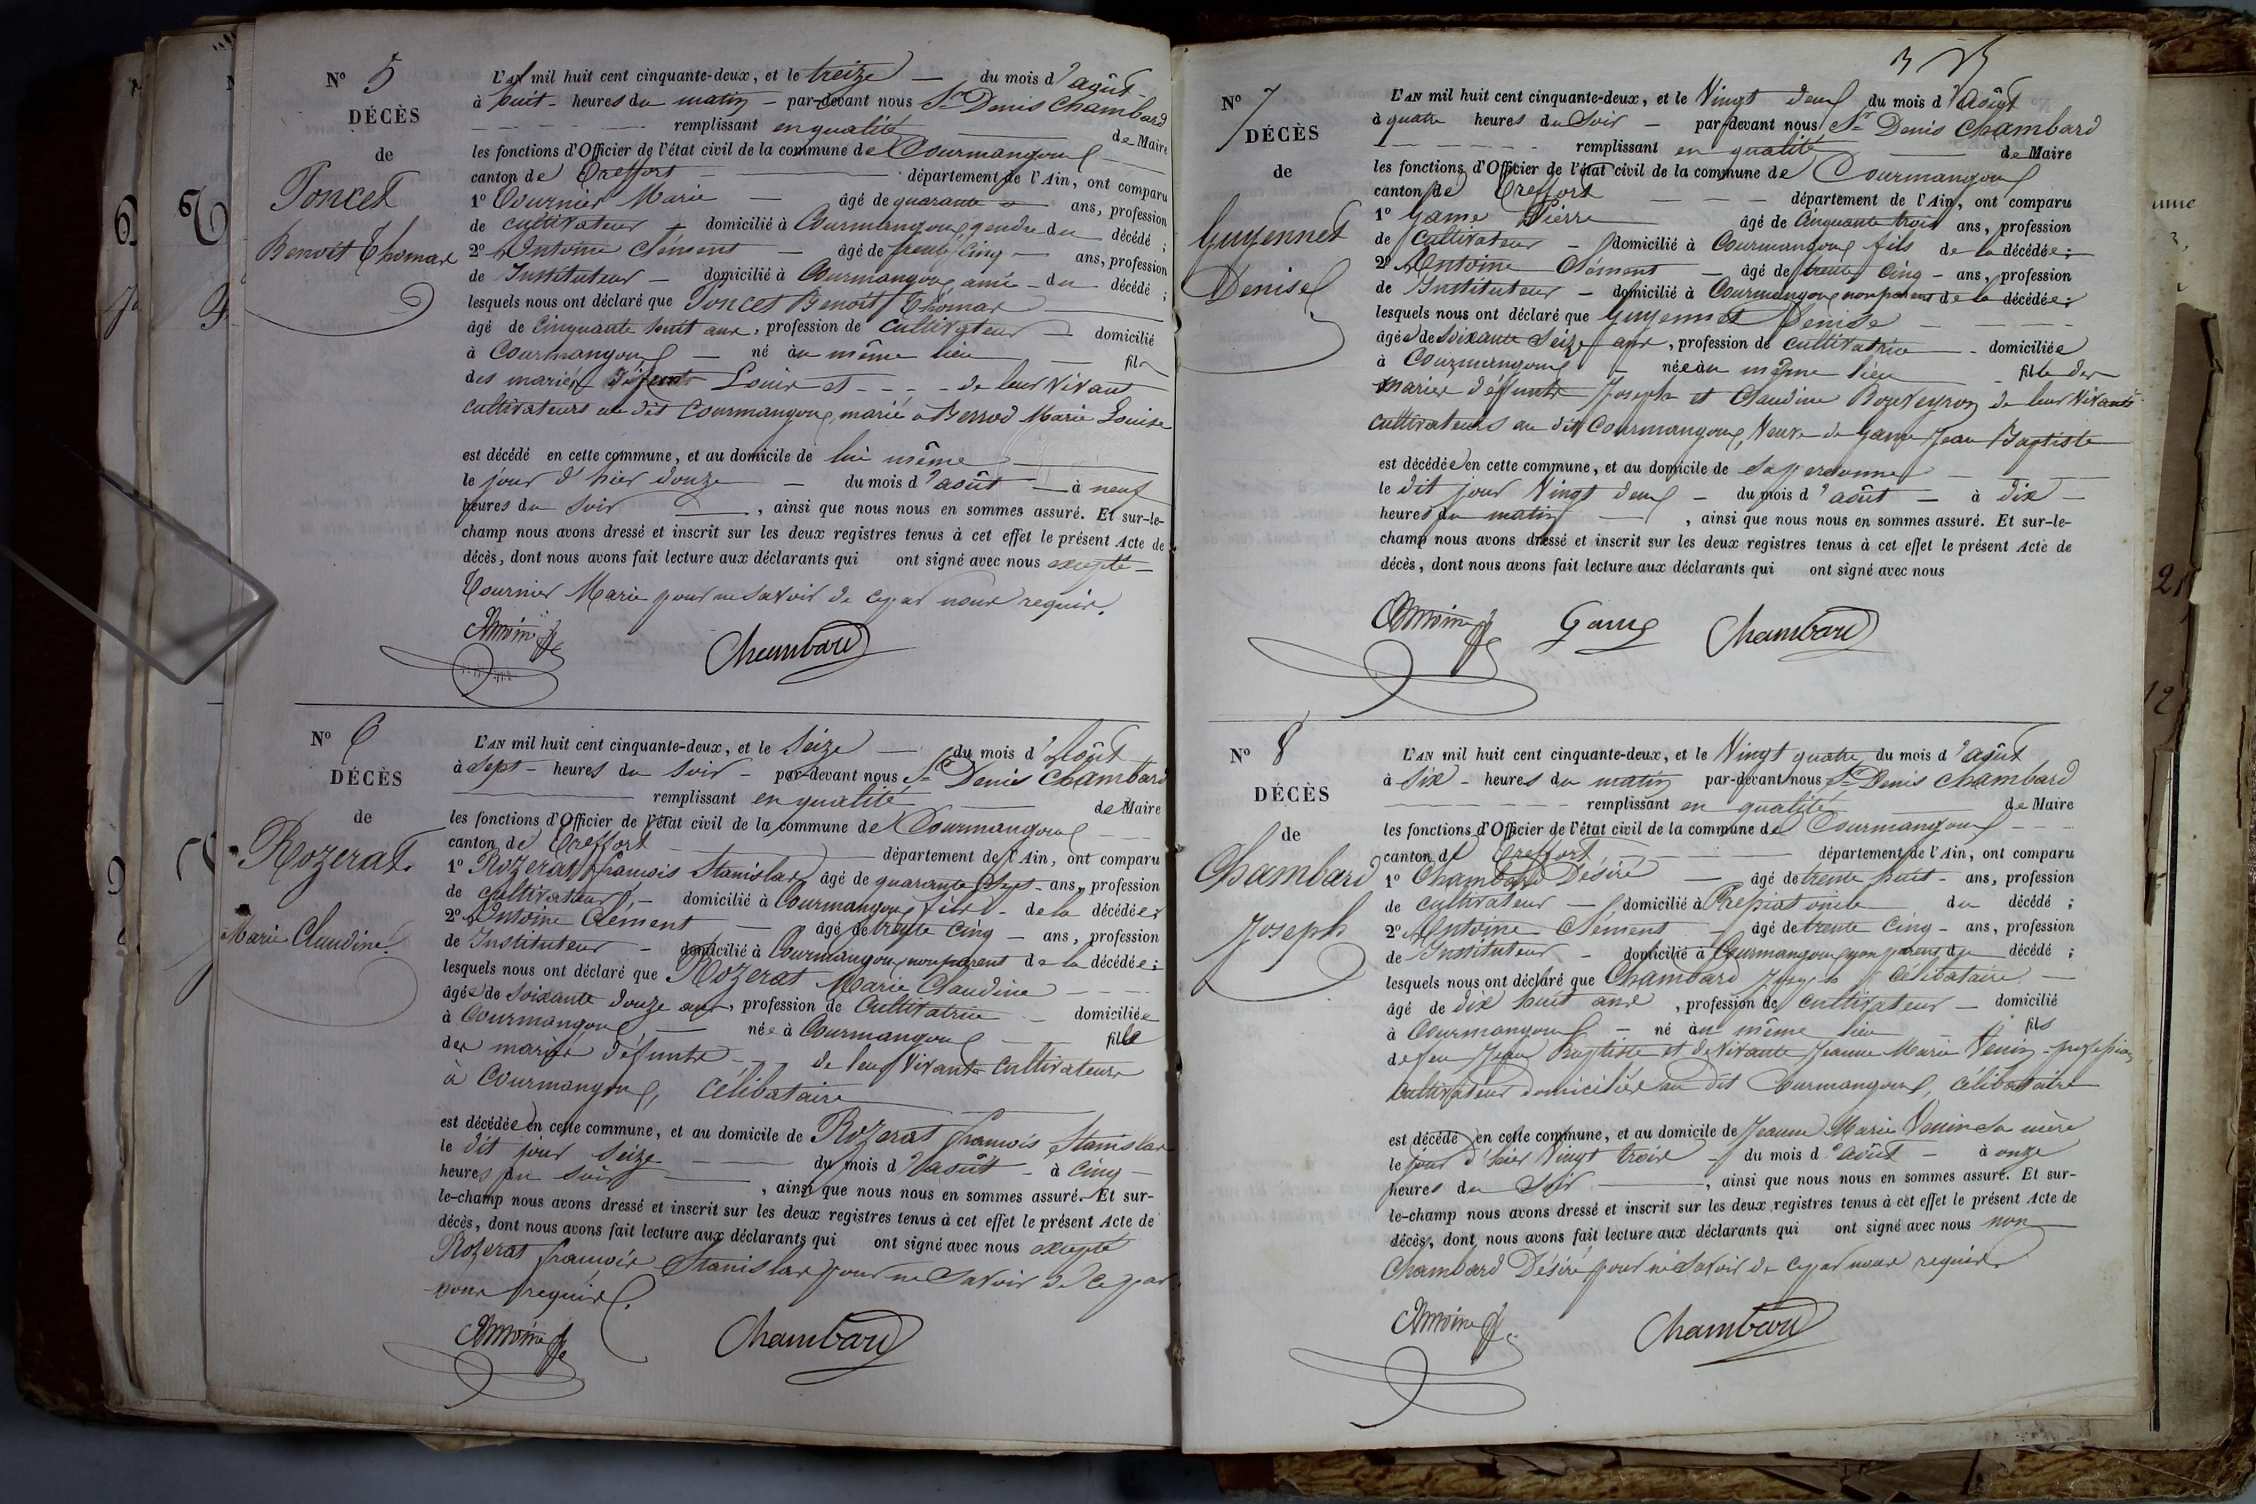 N° 5
DÉCÈS
de
Poncet
Benoit Thomas
L'AN mil huit cent cinquante-deux, et le treize — du mois d'août
à huit heures du matin — par-devant nous Sr Denis Chambard
remplissant en qualité de Maire
les fonctions d'Officier de l'état civil de la commune de Courmangoux
canton de Treffort — département de l'Ain, ont comparu
1° Tournier Marie — âgé de quarante ans, profession
de cultivateur — domicilié à Courmangoux gendre du décédé ;
2° Antoine Clément — âgé de trente cinq — ans, profession
de Instituteur — domicilié à Courmangoux ami — du décédé ;
lesquels nous ont déclaré que Poncet Benoit Thomas
âgé de Cinquante huit ans, profession de Cultivateur — domicilié
à Courmangoux — né au même lieu — fils
des mariés défunts Louis et - - - - de leur vivant
cultivateurs au dit Courmangoux, marié à Berrod Marie Louise
est décédé en cette commune, et au domicile de lui même
le jour d'hier douze — du mois d'août — à neuf
heures du soir — , ainsi que nous nous en sommes assuré. Et sur-le-
champ nous avons dressé et inscrit sur les deux registres tenus à cet effet le présent Acte de
décès, dont nous avons fait lecture aux déclarants qui ont signé avec nous excepté
Tournier Marie pour ne savoir de ce par nous requis.
Antoine Chambard
N° 6
DÉCÈS
de
Rozerat
Marie Claudine
L'AN mil huit cent cinquante-deux, et le Seize — du mois d'Août
à Sept — heures du soir — par-devant nous Sr Denis Chambard
remplissant en qualité de Maire
les fonctions d'Officier de l'état civil de la commune de Courmangoux
canton de Treffort — département de l'Ain, ont comparu
1° Rozerat françois Stanislas âgé de quarante Sept — ans, profession
de cultivateur, — domicilié à Courmangoux fils — de la décédée ;
2° Antoine Clément — âgé de trente cinq — ans, profession
de Instituteur — domicilié à Courmangoux non parent de la décédée ;
lesquels nous ont déclaré que Rozerat Marie Claudine
âgée de soixante douze ans, profession de Cultivatrice — domiciliée
à Courmangoux, — née à Courmangoux — fille
des mariés défunts - - - de leur vivants cultivateurs
à Courmangoux, Célibataire
est décédée en cette commune, et au domicile de Rozerat françois Stanislas
le dit jour Seize — du mois d'août — à cinq
heures du soir — , ainsi que nous nous en sommes assuré. Et sur-
le-champ nous avons dressé et inscrit sur les deux registres tenus à cet effet le présent Acte de
décès, dont nous avons fait lecture aux déclarants qui ont signé avec nous excepté
Rozerat françois Stanislas pour ne savoir de ce par
nous requis.
Antoine Chambard
N° 7
DÉCÈS
de
Guyennet
Denise
L'AN mil huit cent cinquante-deux, et le Vingt deux du mois d'Août
à quatre heures du Soir — par-devant nous Sr Denis Chambard
remplissant en qualité de Maire
les fonctions d'Officier de l'état civil de la commune de Courmangoux
canton de Treffort — département de l'Ain, ont comparu
1° Game Pierre âgé de Cinquante trois ans, profession
de Cultivateur — domicilié à Courmangoux fils de la décédée ;
2° Antoine Clément — âgé de trente cinq — ans, profession
de Instituteur — domicilié à Courmangoux non parent de la décédée ;
lesquels nous ont déclaré que Guyennet Denise
âgée de Soixante Seize ans, profession de cultivatrice — domiciliée
à Courmangoux — née au même lieu — fille des
mariés défunts Joseph et Claudine Bouveyron de leur vivants
cultivateurs au dit Courmangoux, Veuve de Game Jean Baptiste
est décédée en cette commune, et au domicile de Sa personne
le dit jour Vingt deux — du mois d'août — à dix —
heures du matin — , ainsi que nous nous en sommes assuré. Et sur-le-
champ nous avons dressé et inscrit sur les deux registres tenus à cet effet le présent Acte de
décès, dont nous avons fait lecture aux déclarants qui ont signé avec nous
Antoine Game Chambard
N° 8
DÉCÈS
de
Chambard
Joseph
L'AN mil huit cent cinquante-deux, et le Vingt quatre du mois d'août
à Six — heures du matin par-devant nous Sr Denis Chambard
remplissant en qualité de Maire
les fonctions d'Officier de l'état civil de la commune de Courmangoux
canton de Treffort — département de l'Ain, ont comparu
1° Chambard Désiré — âgé de trente huit — ans, profession
de cultivateur — domicilié à Pressiat oncle du décédé ;
2° Antoine Clément — âgé de trente cinq — ans, profession
de Instituteur — domicilié à Courmangoux non parent du décédé ;
lesquels nous ont déclaré que Chambard Joseph célibataire —
âgé de dix huit ans, profession de cultivateur — domicilié
à Courmangoux — né au même lieu — fils
de feu Jean Baptiste et de vivante Jeanne Marie Venin - profession
cultivateurs domiciliée au dit Courmangoux, célibataire
est décédé en cette commune, et au domicile de Jeanne Marie Venin sa mère
le jour d'hier Vingt trois — du mois d'août — à onze
heures du Soir — , ainsi que nous nous en sommes assuré. Et sur-
le-champ nous avons dressé et inscrit sur les deux registres tenus à cet effet le présent Acte de
décès, dont nous avons fait lecture aux déclarants qui ont signé avec nous non
Chambard Désiré pour ne savoir de ce par nous requis.
Antoine Chambard